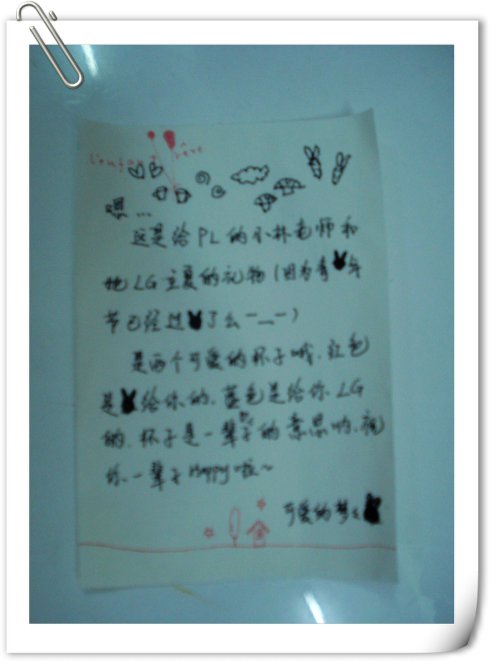 L'enfant rêve
嗯...
这是给PL的小林老师和
她LG立夏的礼物(因为青年
节已经过了么-__-)
是两个可爱的杯子哦.红色
是给你的.蓝色是给你LG
的.杯子是一辈子的意思哟.祝
你一辈子Happy啦~
可爱的梦